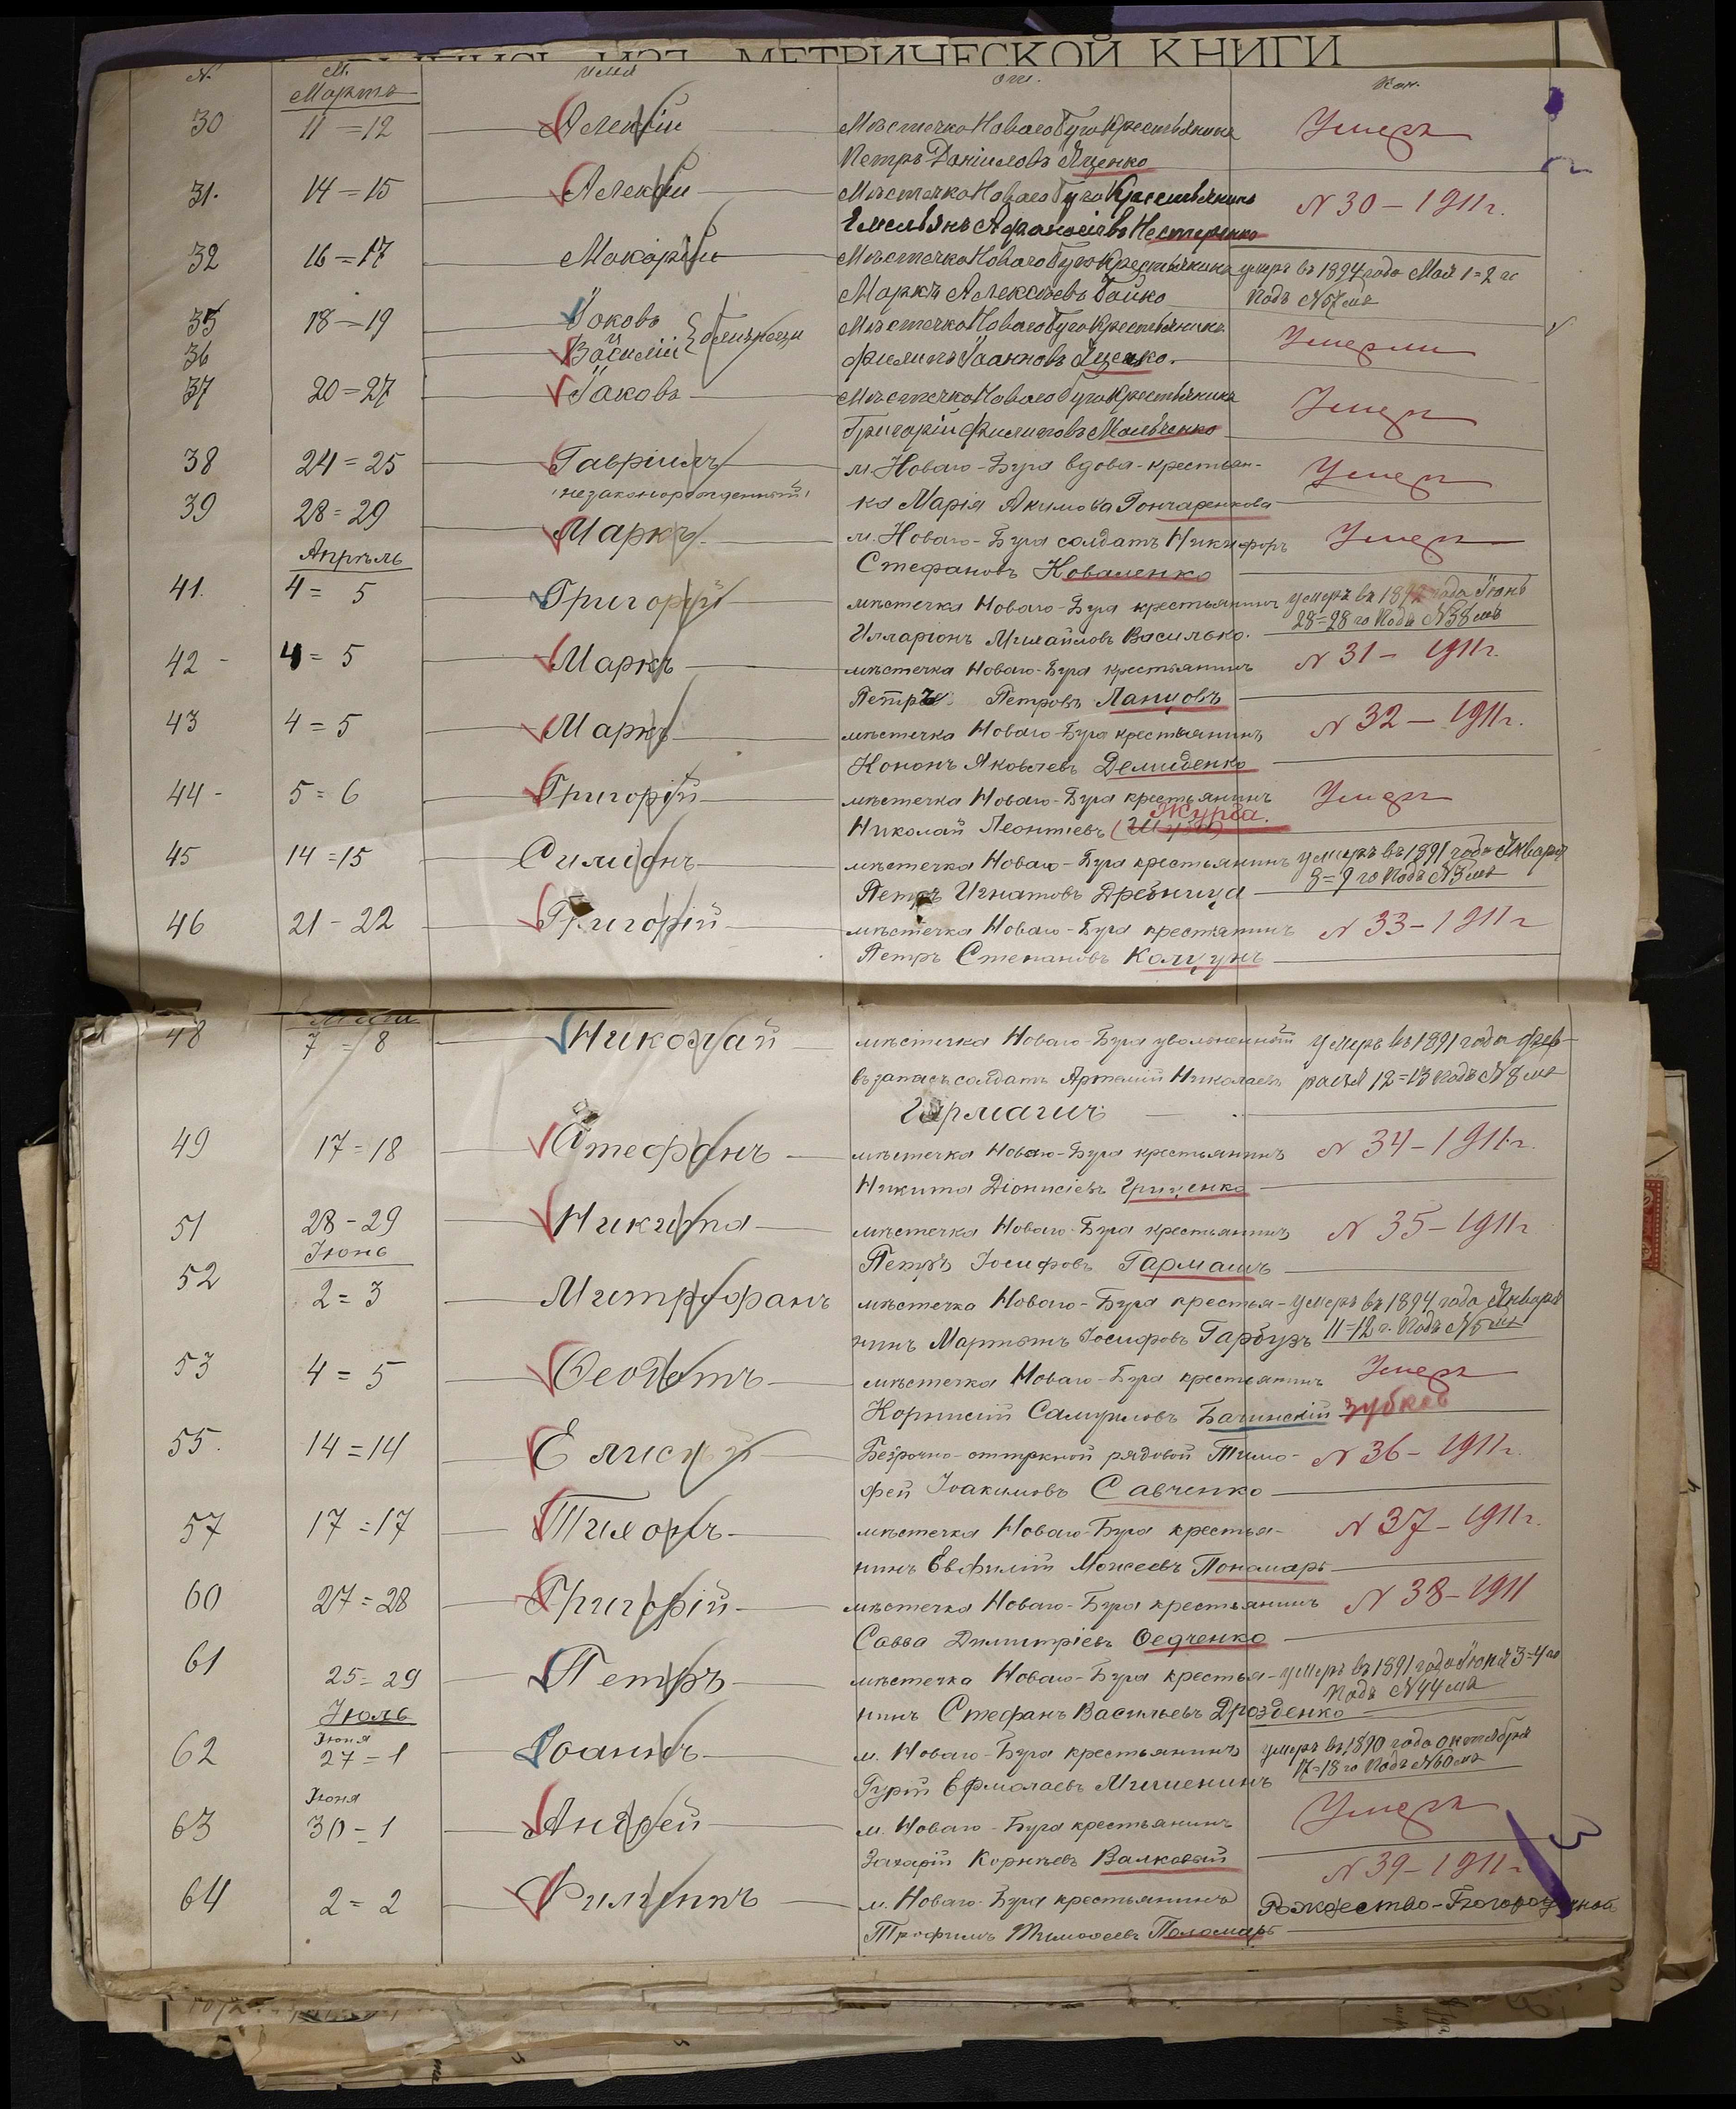 МЕТРИЧЕСКОЙ КНИГИ
№ М. имя от.
Мартъ
30 11=12 Алексѣй Мѣстечка Новаго Буга крестьянинъ Умеръ
Петръ Даніиловъ Яценко
31. 14=15 Алексѣй Мѣстечка Новаго Буга крестьянинъ N 30 - 1911 г.
Емельянъ Афанасіевъ Нестеренко
32 16=17 Макарій Мѣстечка Новаго Буга крестьянинъ умеръ въ 1894 года Мая 1=2 го
Маркъ Алексѣевъ Гайко подъ №57мъ
35 18=19 Іаковъ Мѣстечка Новаго Буга крестьянинъ Умерли
36 Василій близнецы Филипъ Іоанновъ Яценко.
37 20=27 Іаковъ Мѣстечка Новаго Буга крестьянинъ Умеръ
Григорій Филиповъ
38 24=25 Гавріилъ м. Новаго-Буга вдова-крестьян- Умеръ
незаконорожденный ка Марія Акимова Гончаренкова
39 28=29 Маркъ м. Новаго-Буга солдатъ Никифоръ Умеръ
Стефановъ Коваленко
Апрѣль
41. 4=5 Григорій мѣстечка Новаго-Буга крестьянинъ умеръ въ года Іюнь
28=28 го подъ №38мъ
Илларіонъ Михайловъ Василько.
42 - 4=5 Маркъ мѣстечка Новаго-Буга крестьянинъ N 31 - 1911 г.
Петръ Петровъ Ланцовъ
43 4=5 Маркъ мѣстечка Новаго-Буга крестьянинъ N 32 - 1911 г.
Кононъ Яковлевъ Демиденко
44 - 5=6 Григорій мѣстечка Новаго-Буга крестьянинъ Умеръ
Николай Леонтіевъ Журба.
45 14=15 Симеонъ мѣстечка Новаго-Буга крестьянинъ умеръ въ 1891 года Января
Петръ Игнатовъ Дребница 8=9 го подъ №3мъ
46 21-22 Григорій мѣстечка Новаго-Буга крестьянинъ N 33 - 1911 г
Петръ Степановъ Колцунъ
48 7=8 Николай мѣстечка Новаго-Буга уволенный умеръ въ 1891 года фев-
въ запасъ солдатъ Артемій Николаевъ раля 12=13 подъ №8мъ
49 17=18 Стефанъ мѣстечка Новаго-Буга крестьянинъ N 34 - 1911 г.
Никита Діонисіевъ Гриценко
51 28-29 Никита мѣстечка Новаго-Буга крестьянинъ N 35 - 1911 г
Петръ Іосифовъ Гармашъ
Іюнь
52 2=3 Митрофанъ мѣстечка Новаго-Буга крестья- умеръ въ 1894 года Января
нинъ Мартынъ Іосифовъ Гарбузъ 11=12 г. подъ №5мъ
53 4=5 Ѳеодотъ мѣстечка Новаго-Буга крестьянинъ Умеръ
Корнилій Самуиловъ Бачинскій Зубков
55. 14=14 Елисей Безсрочно-отпускной рядовой Тимо- N 36 - 1911 г.
фей Іоакимовъ Савченко
57 17=17 Тихонъ мѣстечка Новаго-Буга крестья- N 37 - 1911 г.
нинъ Евфимій Моисеевъ Пономарь
60 27=28 Григорій мѣстечка Новаго-Буга крестьянинъ N 38 - 1911
Савва Димитріевъ Ѳедченко
61 25=29 Петръ мѣстечка Новаго-Буга крестья- умеръ въ 1891 года Іюня 3=4 го
нинъ Стефанъ Васильевъ Дрозденко подъ №44мъ
Іюль
Іюня
62 27=1 Іоаннъ м. Новаго-Буга крестьянинъ умеръ въ 1890 года октября
Гурій Ермолаевъ Мишенинъ 17=18 го подъ №60мъ
Іюня
63 30=1 Андрей м. Новаго-Буга крестьянинъ Умеръ
Захарій Корнѣевъ Валковый
N 39 - 1911 г
64 2=2 Филиппъ м. Новаго-Буга крестьянинъ Рождество-Богородичной
Трофимъ Тимоѳеевъ Поломарь
3